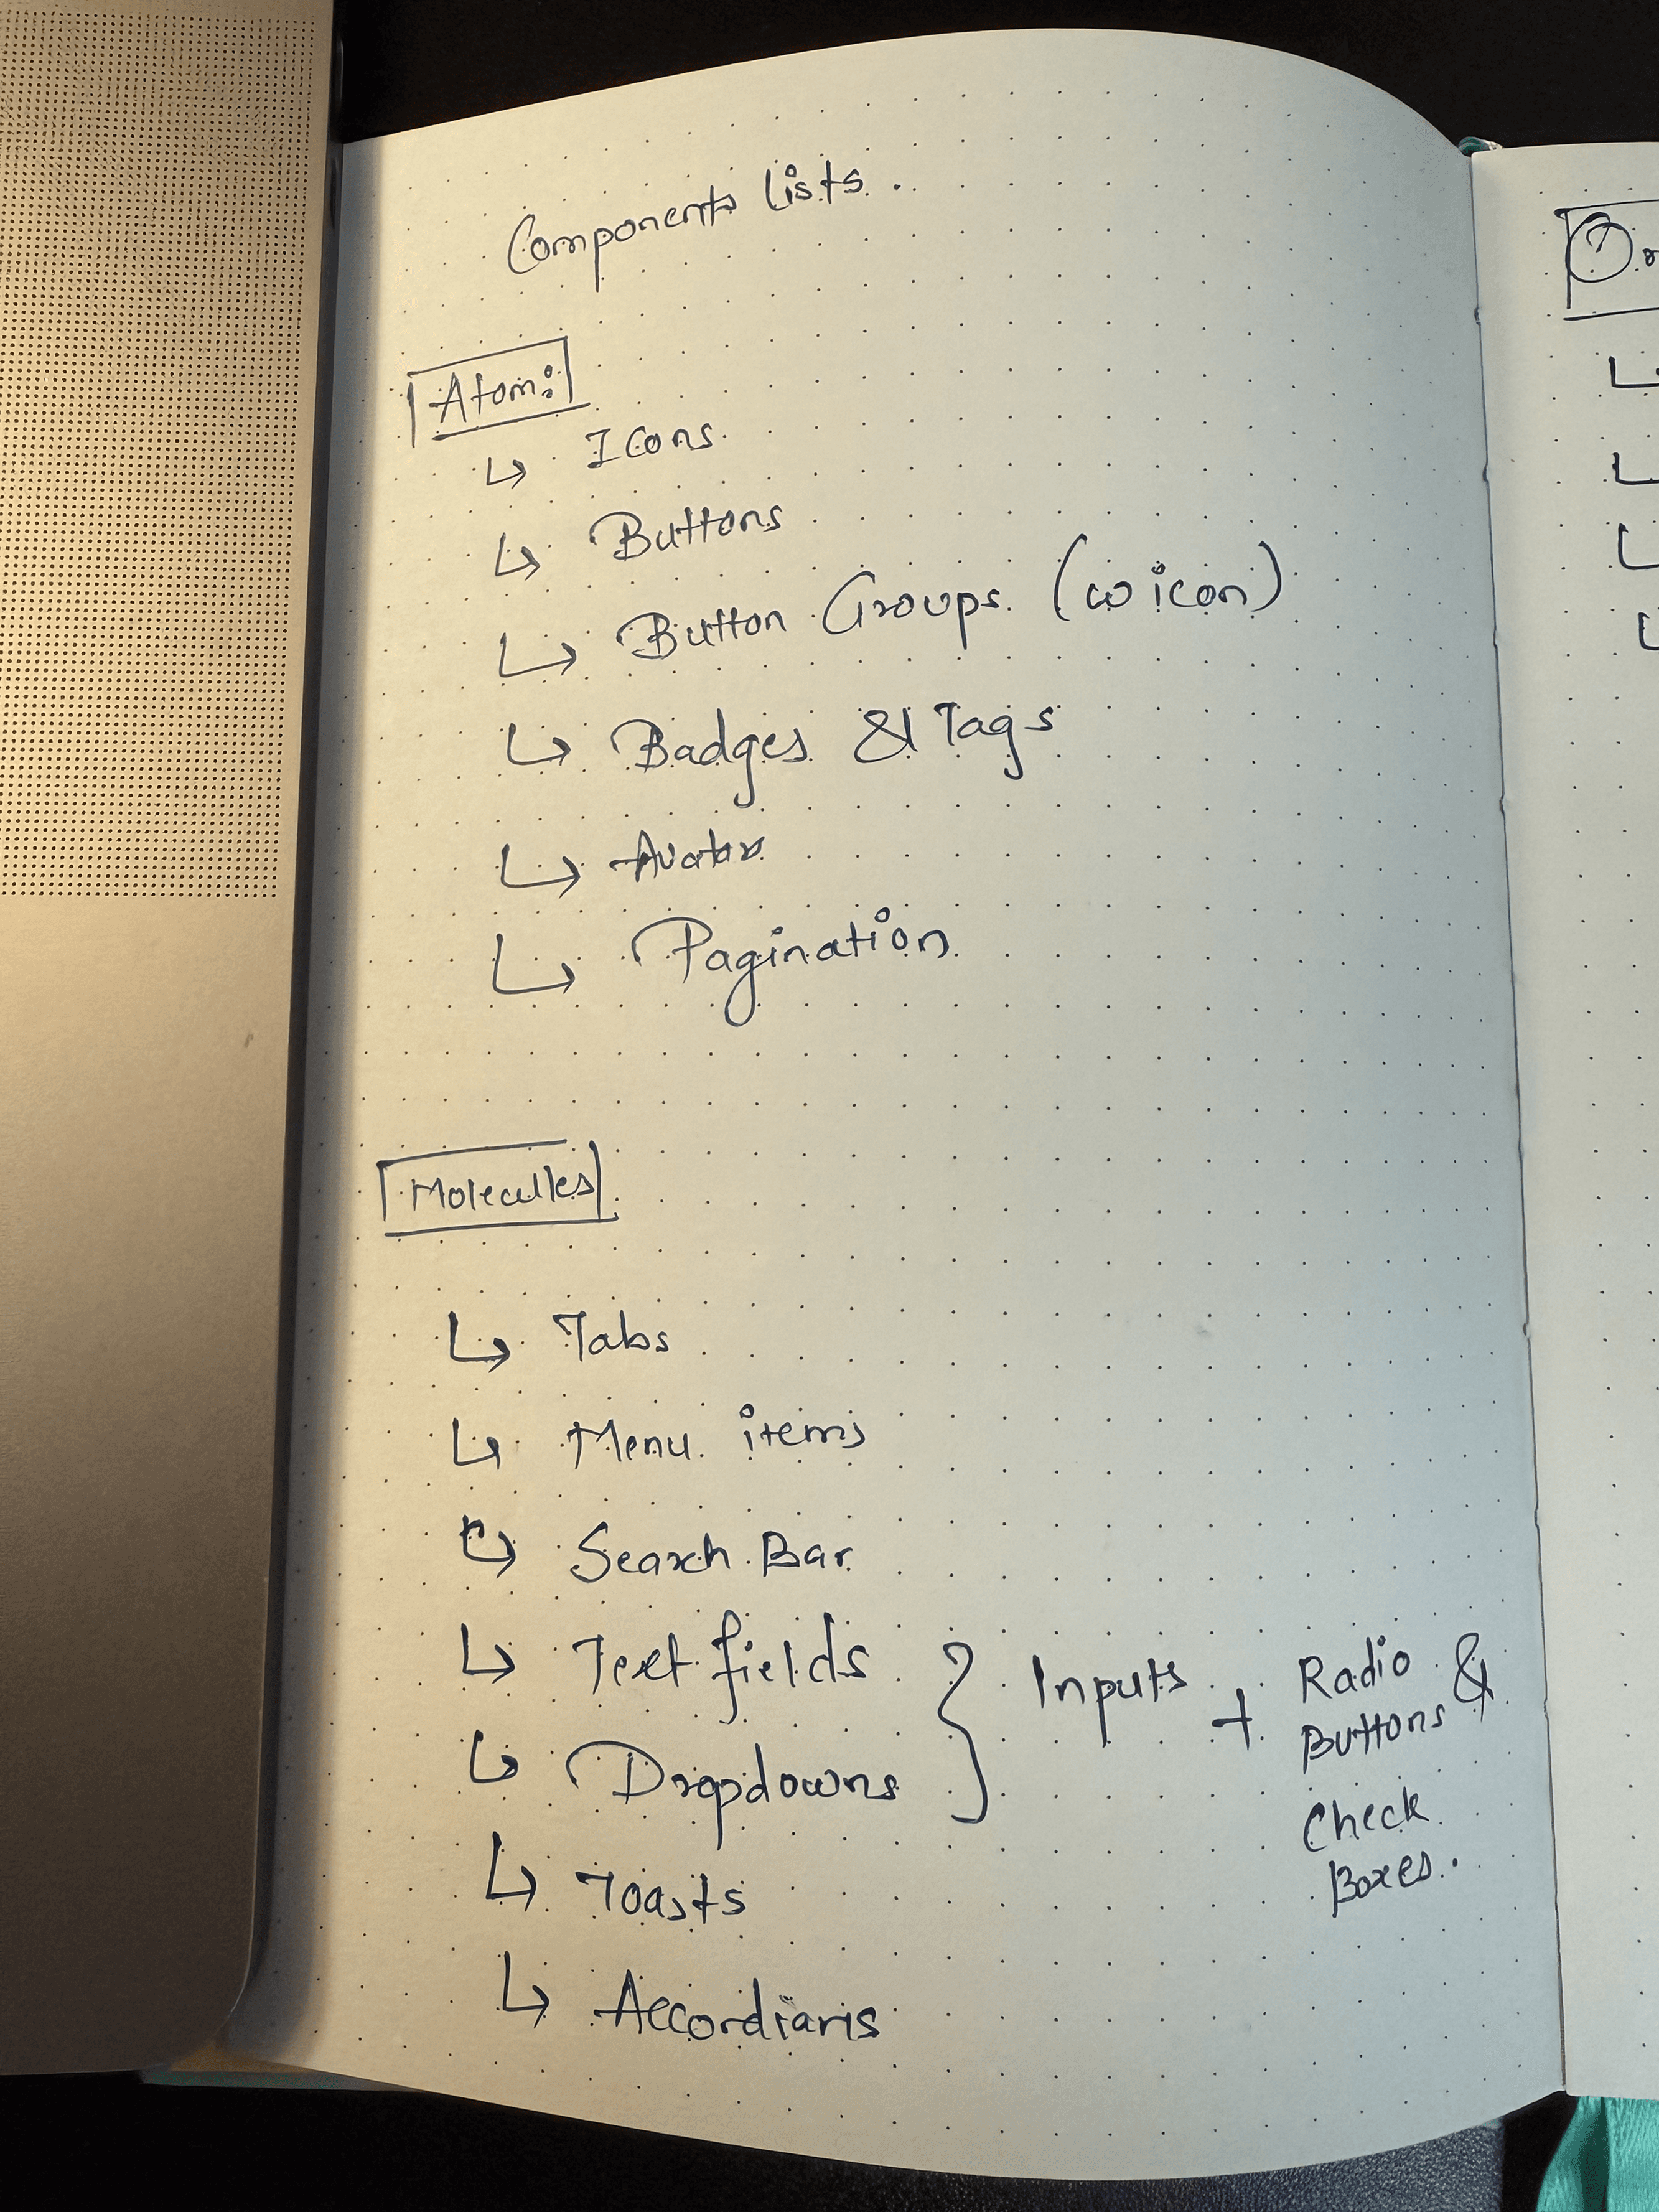 Components Lists.
Atom:
↳ Icons
↳ Buttons
↳ Button Groups (w icon)
↳ Badges & Tags
↳ Avatar
↳ Pagination
Molecules
↳ Tabs
↳ Menu items
↳ Search Bar
↳ Text fields } Inputs + Radio &
Buttons
↳ Dropdowns
Check
Boxes.
↳ Toasts
↳ Accordians
Or